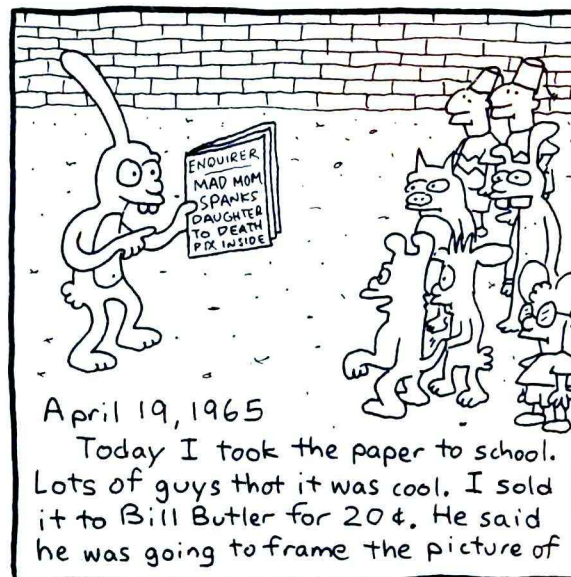 ENQUIRER
MAD MOM
SPANKS
DAUGHTER
TO DEATH
PIX INSIDE
April 19, 1965
Today I took the paper to school.
Lots of guys thot it was cool. I sold
it to Bill Butler for 20¢. He said
he was going to frame the picture of